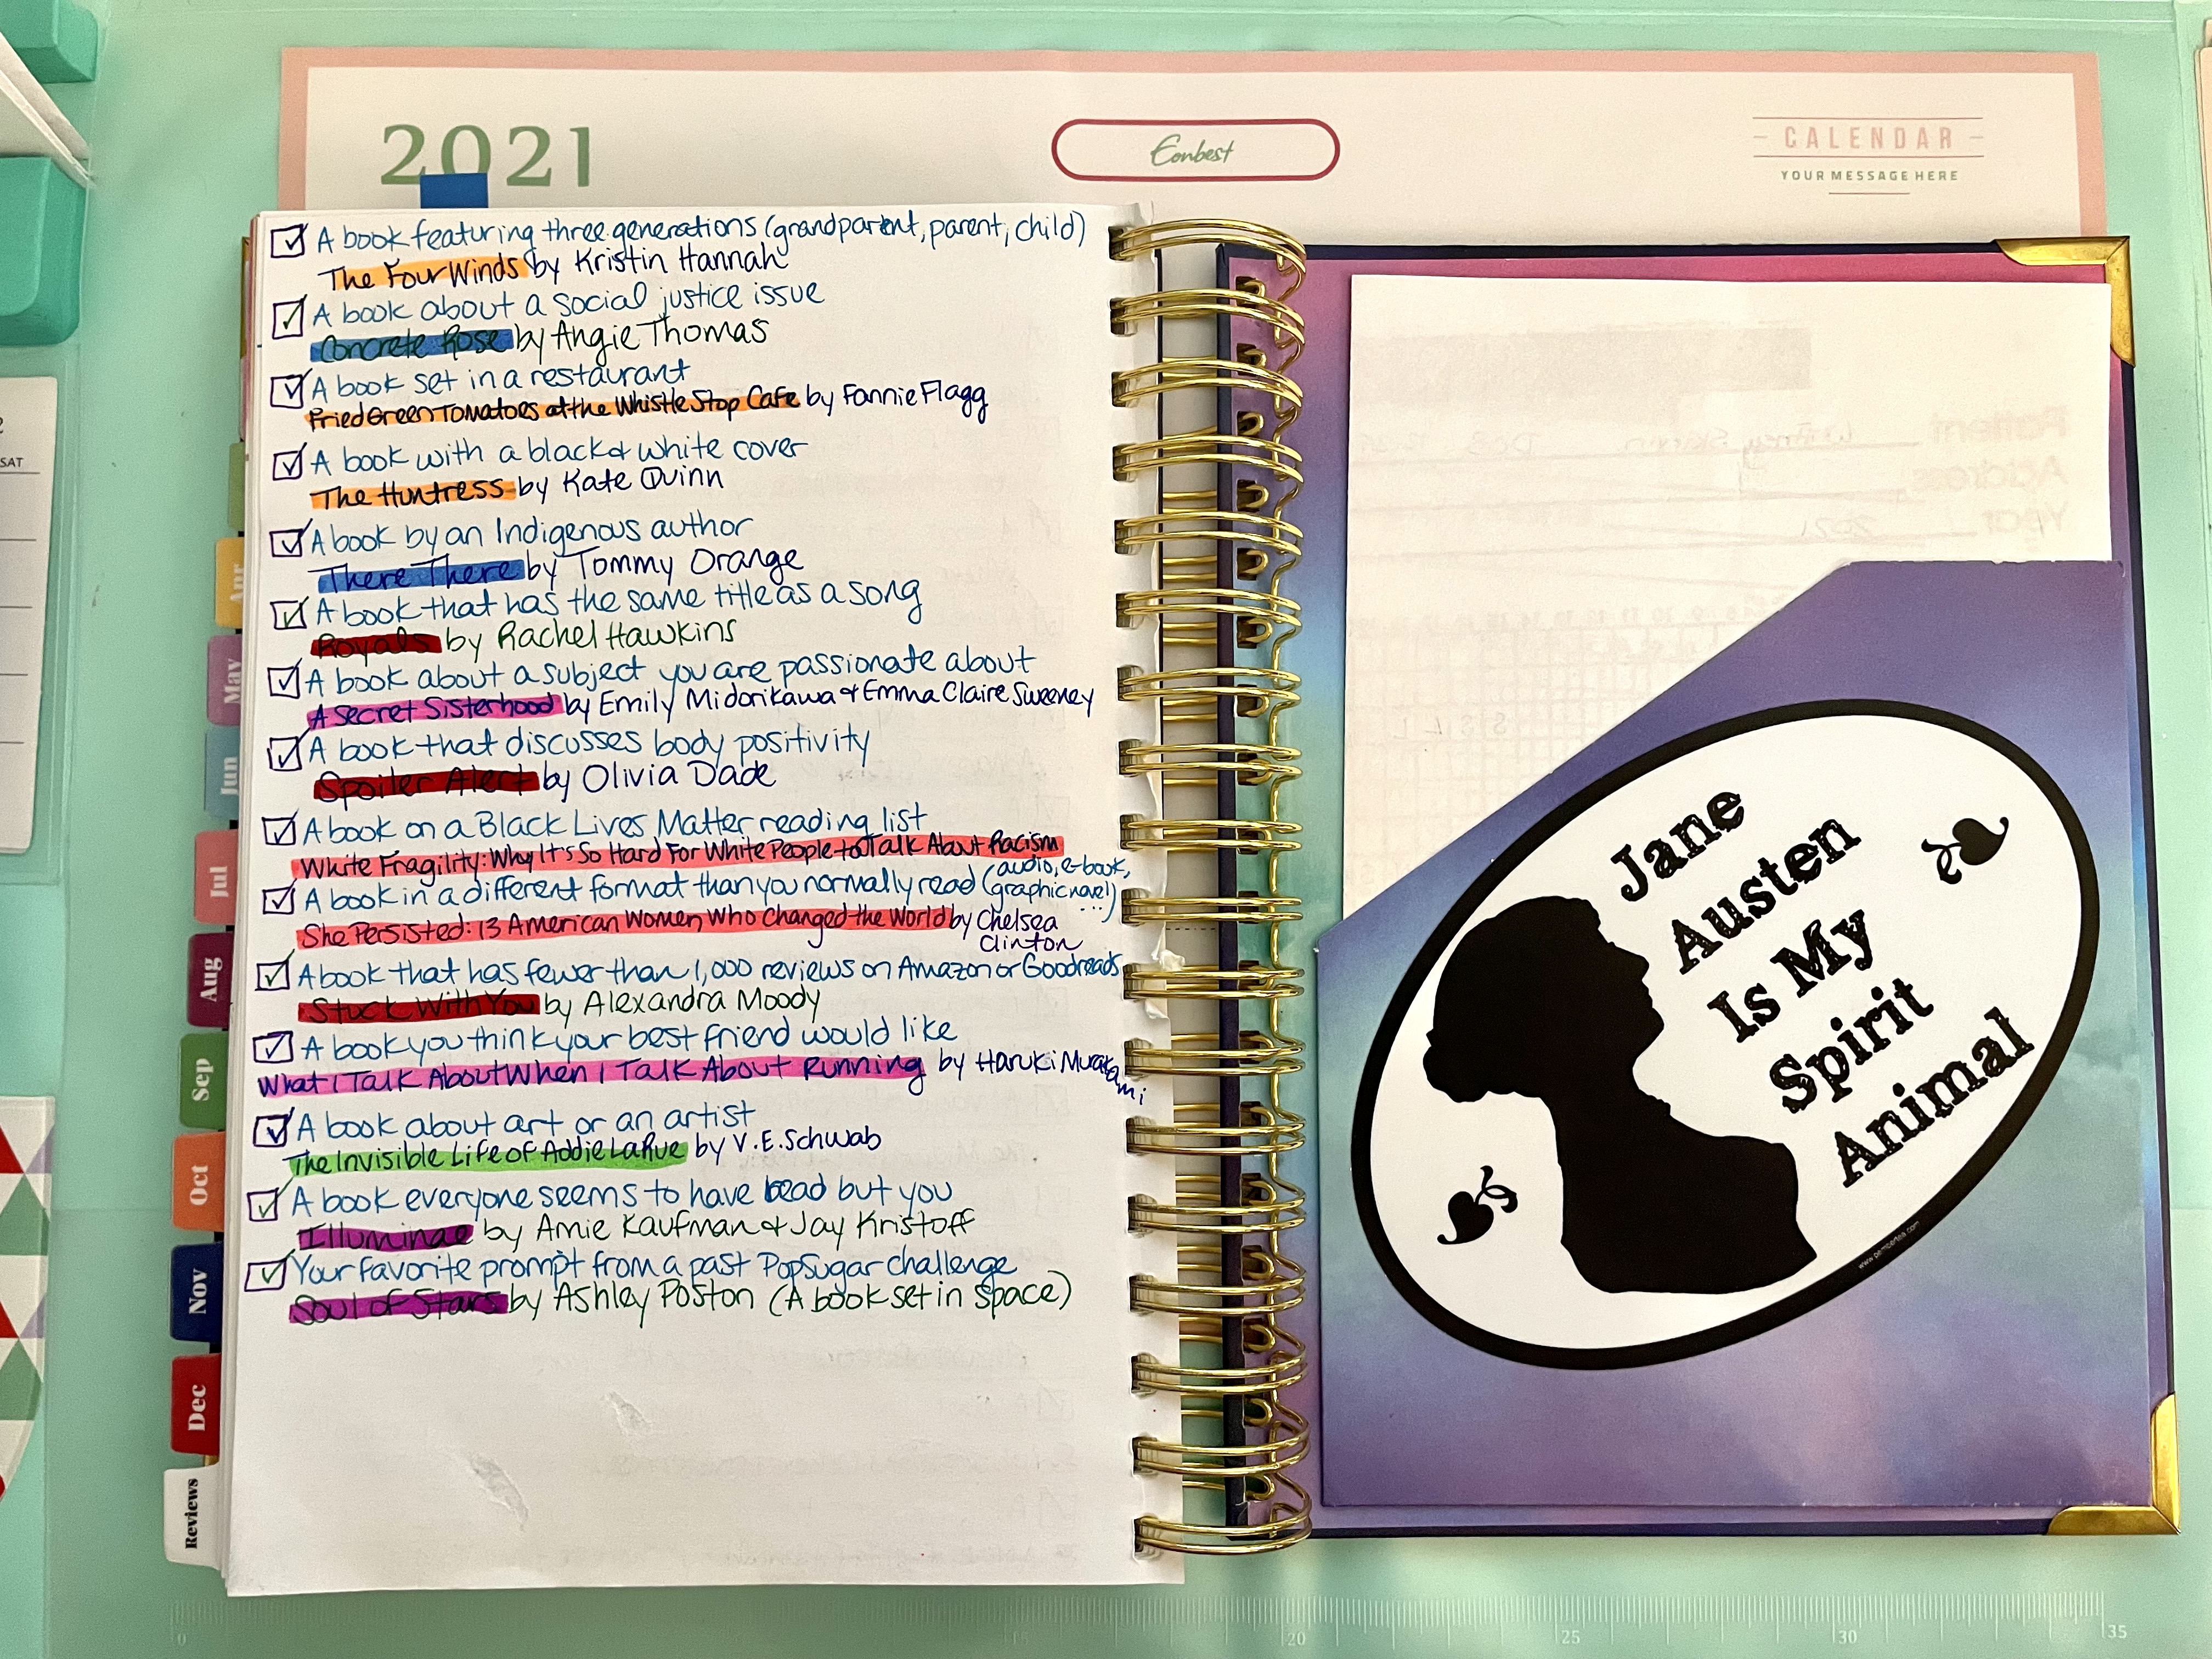 2021
Eonbest
CALENDAR
YOUR MESSAGE HERE
A book featuring three generations (grandparent, parent, child)
The Four Winds by Kristin Hannah
A book about a social justice issue
Concrete Rose by Angie Thomas
A book set in a restaurant
Fried Green Tomatoes at the Whistle Stop Cafe by Fannie Flagg
A book with a black & white cover
The Huntress by Kate Quinn
A book by an Indigenous author
There There by Tommy Orange
A book that has the same title as a song
Royals by Rachel Hawkins
A book about a subject you are passionate about
A Secret Sisterhood by Emily Midorikawa & Emma Claire Sweeney
A book that discusses body positivity
Spoiler Alert by Olivia Dade
A book on a Black Lives Matter reading list
White Fragility: Why It's So Hard For White People to Talk About Racism
A book in a different format than you normally read (audio, e-book,
graphic novel...)
She Persisted: 13 American Women Who Changed the World by Chelsea
Clinton
A book that has fewer than 1,000 reviews on Amazon or Goodreads
Stuck With You by Alexandra Moody
A book you think your best friend would like
What I Talk About When I Talk About Running by Haruki Murakami
A book about art or an artist
The Invisible Life of Addie LaRue by V.E. Schwab
A book everyone seems to have read but you
Illuminae by Amie Kaufman & Jay Kristoff
Your favorite prompt from a past PopSugar challenge
Soul of Stars by Ashley Poston (A book set in space)
SAT
Apr
May
Jun
Jul
Aug
Sep
Oct
Nov
Dec
Reviews
Jane
Austen
Is My
Spirit
Animal
0
15
20
25
30
35